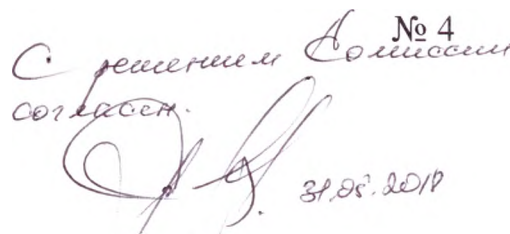 № 4
С решением Комиссии
согласен.
31.05.2018